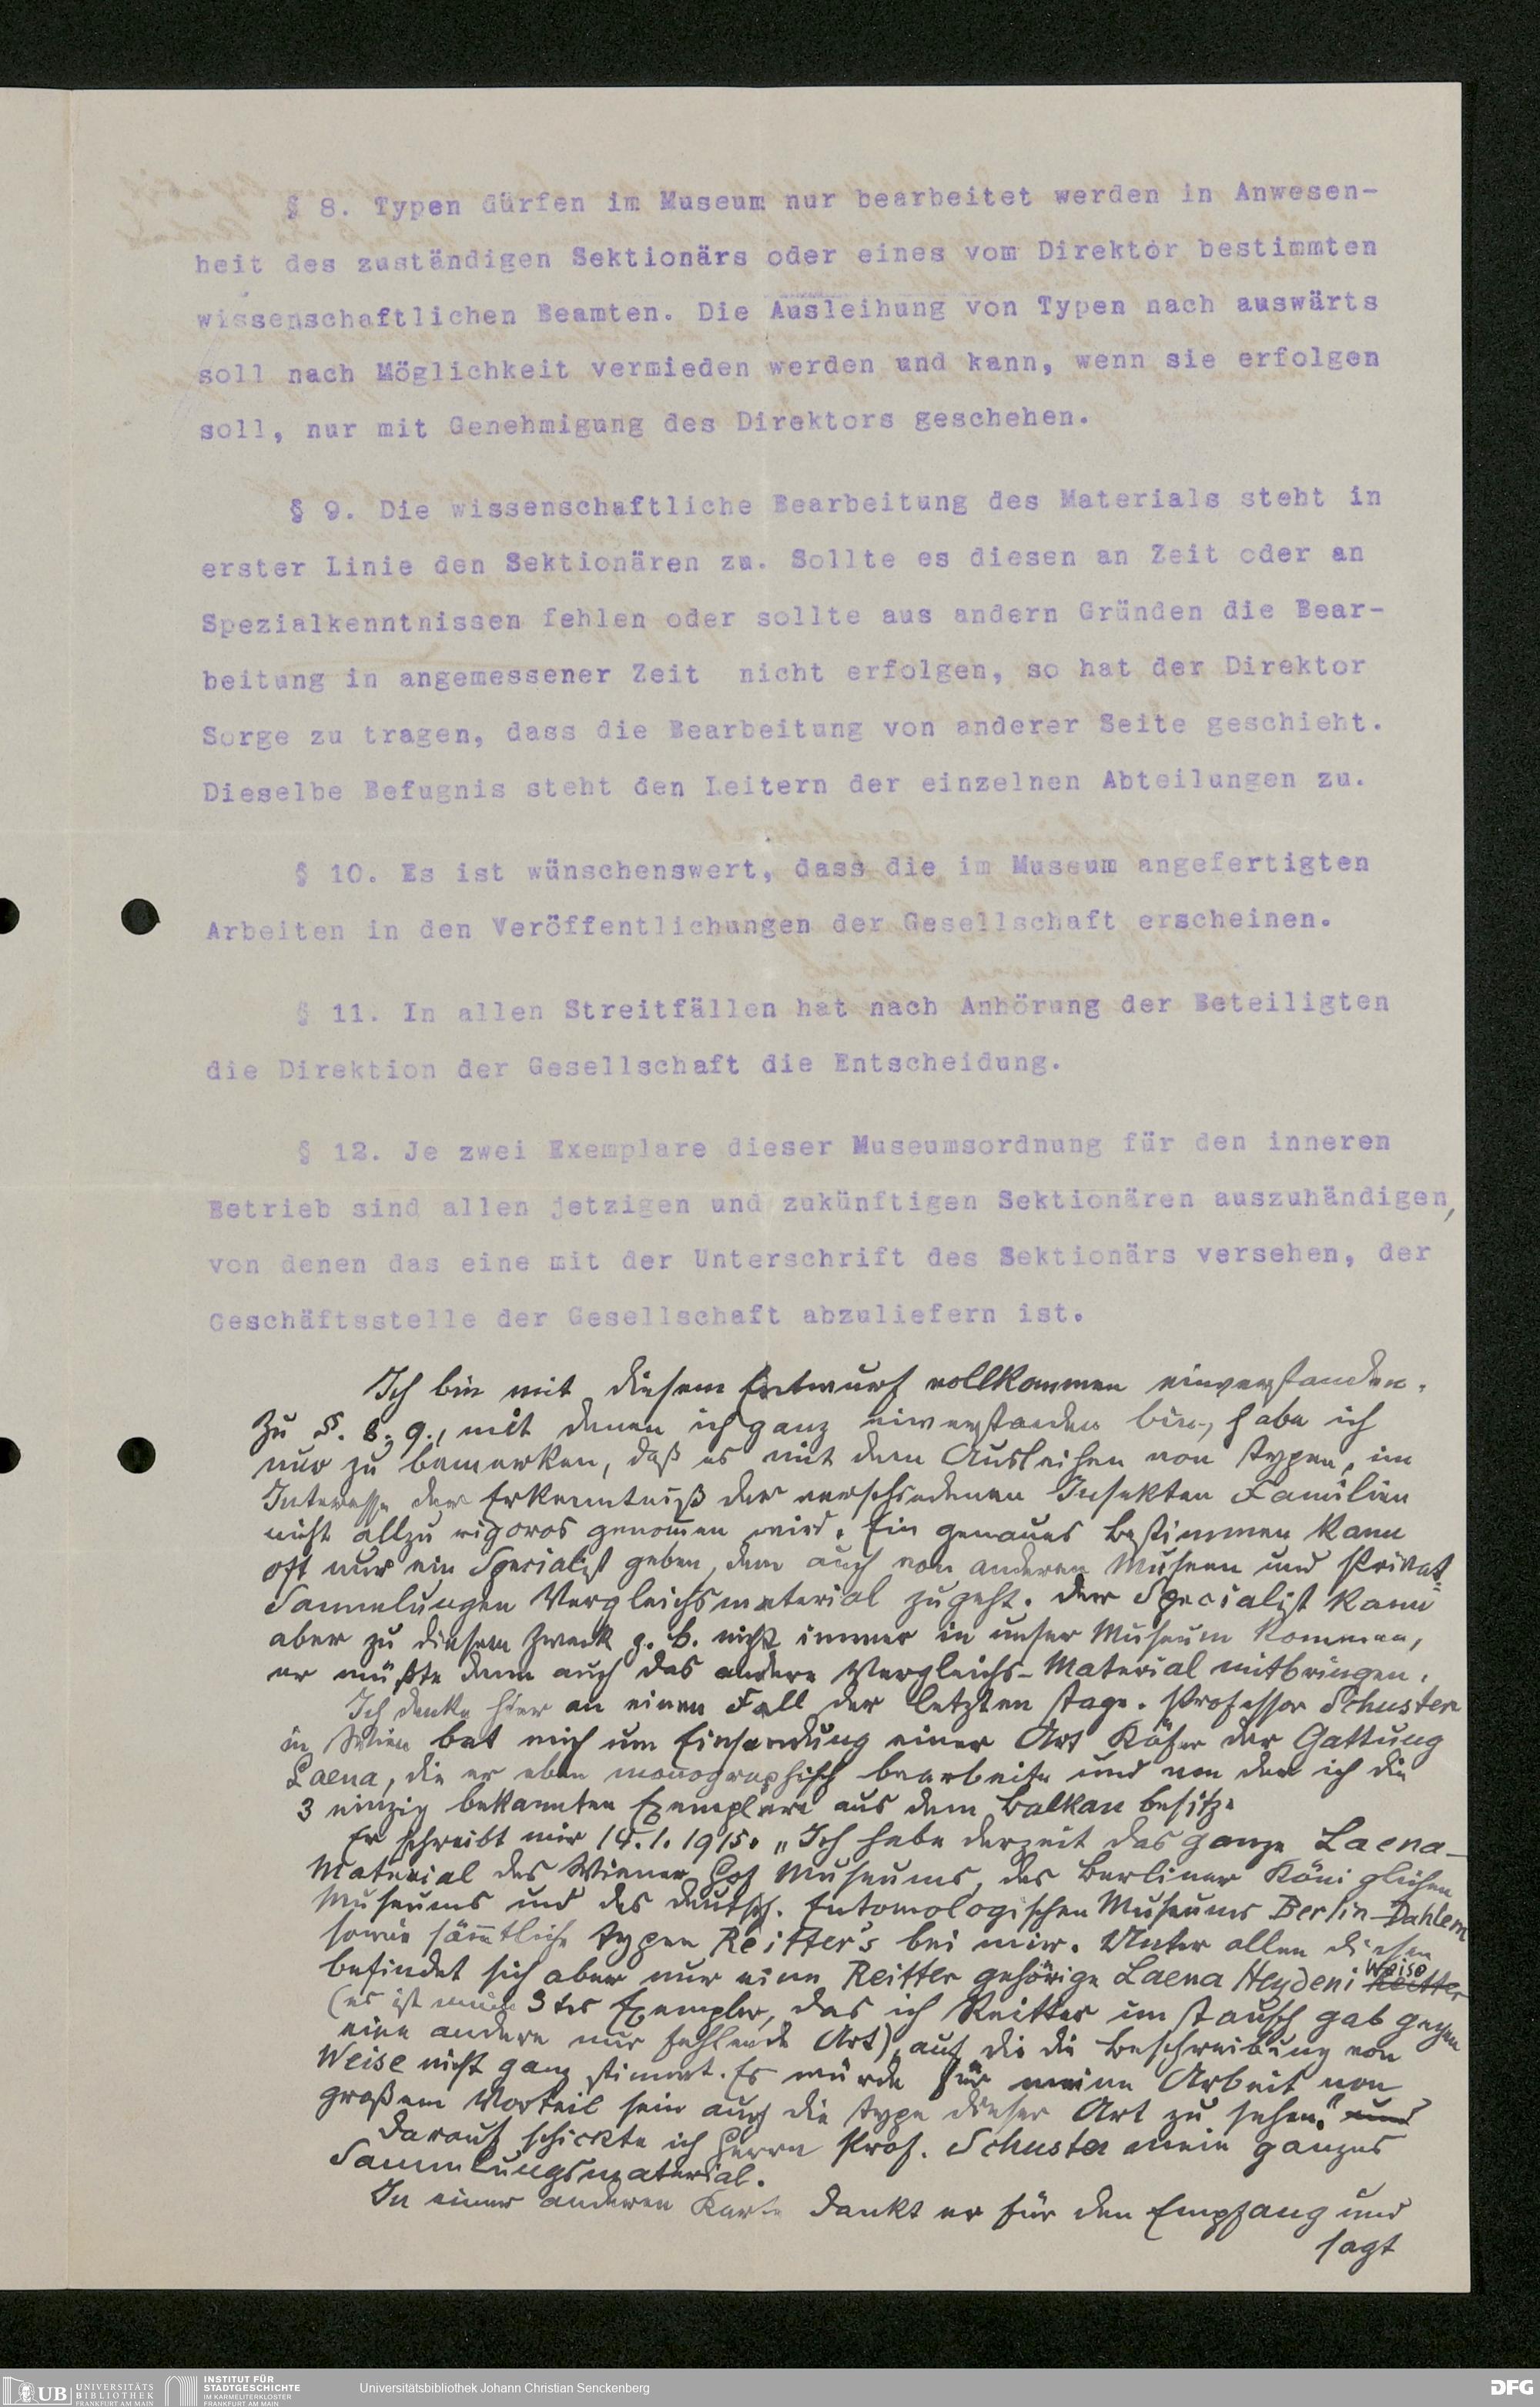 § 8. Typen dürfen im Museum nur bearbeitet werden in Anwesen-
heit des zuständigen Sektionärs oder eines vom Direktor bestimmten
wissenschaftlichen Beamten. Die Ausleihung von Typen nach auswärts
soll nach Möglichkeit vermieden werden und kann, wenn sie erfolgen
soll, nur mit Genehmigung des Direktors geschehen.
§ 9. Die wissenschaftliche Bearbeitung des Materials steht in
erster Linie den Sektionären zu. Sollte es diesen an Zeit oder an
Spezialkenntnissen fehlen oder sollte aus andern Gründen die Bear-
beitung in angemessener Zeit nicht erfolgen, so hat der Direktor
Sorge zu tragen, dass die Bearbeitung von anderer Seite geschieht.
Dieselbe Befugnis steht den Leitern der einzelnen Abteilungen zu.
§ 10. Es ist wünschenswert, dass die im Museum angefertigten
Arbeiten in den Veröffentlichungen der Gesellschaft erscheinen.
§ 11. In allen Streitfällen hat nach Anhörung der Beteiligten
die Direktion der Gesellschaft die Entscheidung.
§ 12. Je zwei Exemplare dieser Museumsordnung für den inneren
Betrieb sind allen jetzigen und zukünftigen Sektionären auszuhändigen,
von denen das eine mit der Unterschrift des Sektionärs versehen, der
Geschäftsstelle der Gesellschaft abzuliefern ist.
Ich bin mit diesem Entwurf vollkommen einverstanden.
Zu §. 8. 9., mit denen ich ganz einverstanden bin, habe ich
nur zu bemerken, daß es mit dem Ausleihen von Typen, im
Interesse der Erkenntniß der verschiedenen Insekten Familien
nicht allzu rigoros genommen wird. Ein genaues Bestimmen kann
oft nur ein Specialist geben, dem auch von anderen Museen und Privat-
Sammlungen Vergleichsmaterial zugeht. Der Specialist kann
aber zu diesem Zweck z. B. nicht immer in unser Museum kommen,
er müßte denn auch das andere Vergleichs-Material mitbringen.
Ich denke hier an einen Fall der letzten Tage. Professor Schuster
in Wien bat mich um Einsendung einer Art Käfer der Gattung
Laena, die er eben monographisch bearbeite und von der ich die
3 einzig bekannten Exemplare aus dem Balkan besitze.
Er schreibt mir 14.1.1915. „Ich habe derzeit das ganze Laena-
Material des Wiener Hof Museums, des Berliner Königlichen
Museums und des Deutsch. Entomologischen Museums Berlin-Dahlem
sowie sämmtliche Typen Reitter's bei mir. Unter allen diesen
befindet sich aber nur eine Reitter gehörige Laena Heydeni Weise Reitter
(es ist mein 3tes Exemplar, das ich Reitter im Tausch gab gegen
eine andere mir fehlende Art), auf die die Beschreibung von
Weise nicht ganz stimmt. Es würde für meine Arbeit von
großem Vorteil sein auch die Type dieser Art zu sehen." und
Darauf schickte ich Herrn Prof. Schuster mein ganzes
Sammlungsmaterial.
In einer anderen Karte dankt er für den Empfang und
sagt
UB UNIVERSITÄTS
BIBLIOTHEK
FRANKFURT AM MAIN
INSTITUT FÜR
STADTGESCHICHTE
IM KARMELITERKLOSTER
FRANKFURT AM MAIN
Universitätsbibliothek Johann Christian Senckenberg
DFG